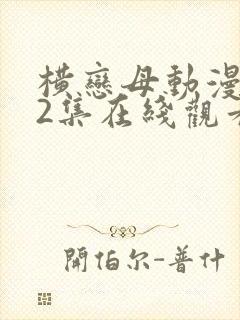 橫戀母動漫
2集在綫觀看
開伯尔-普什